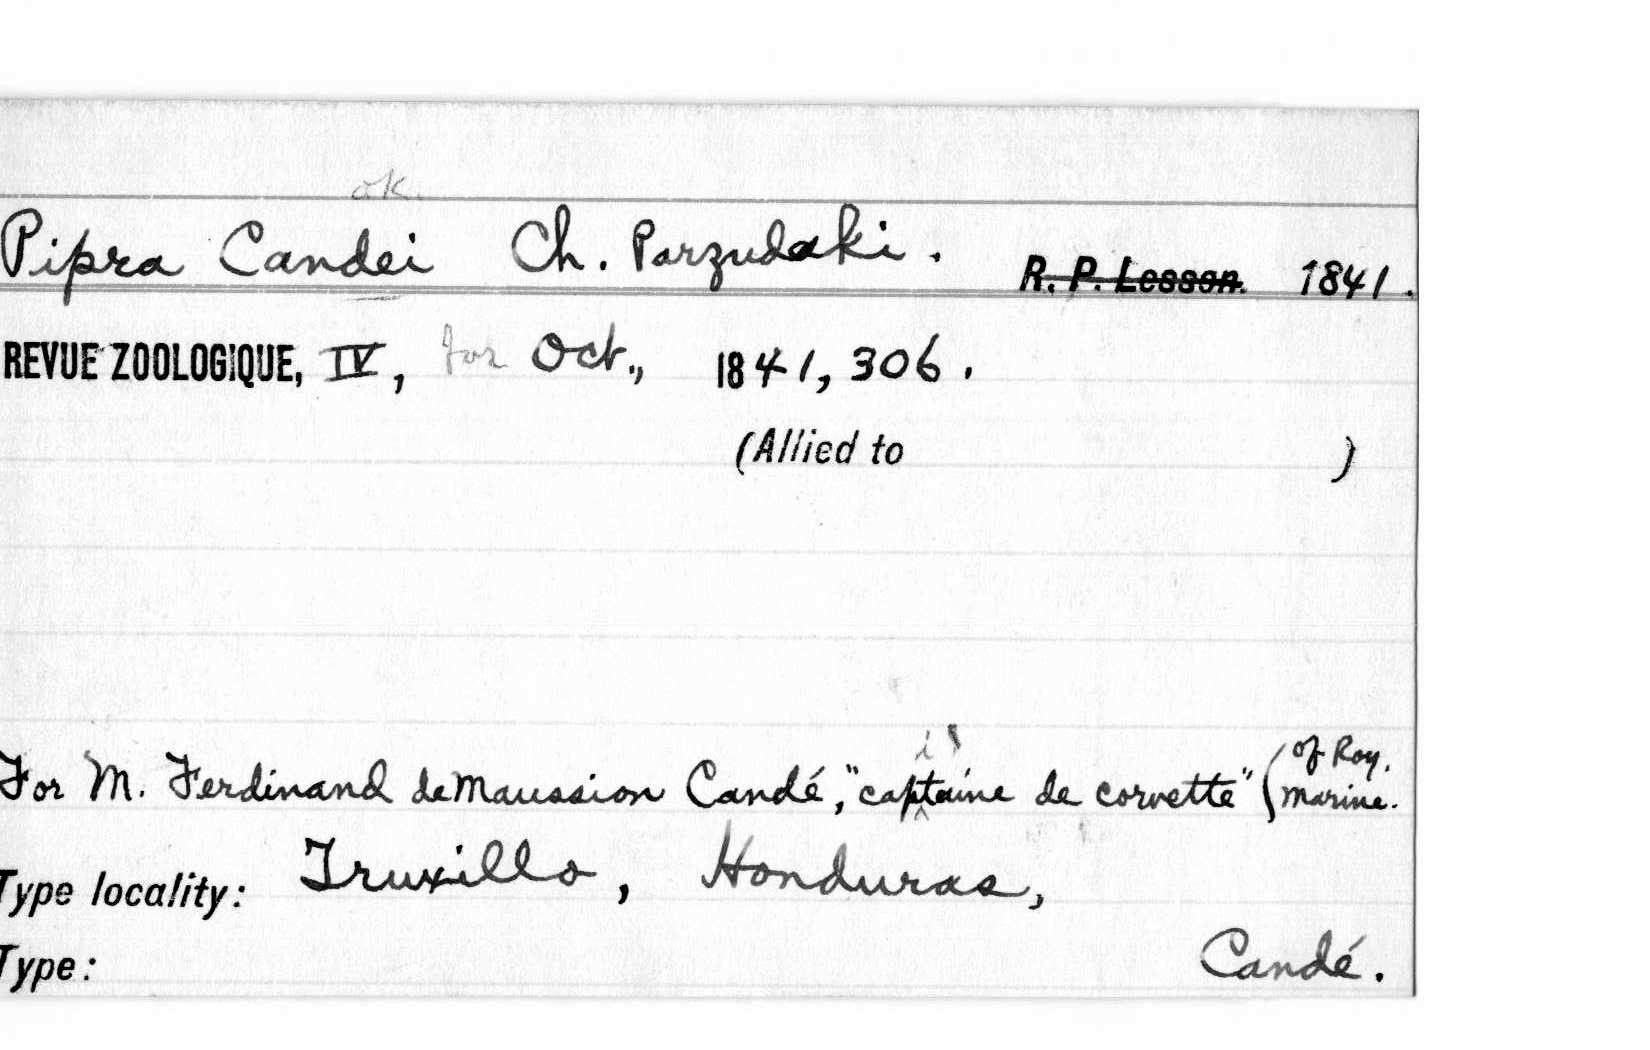 ok.
Pipra Candei Ch. Parzudaki. R. P. Lesson. 1841.
REVUE ZOOLOGIQUE, IV, for Oct., 1841, 306.
(Allied to )
of Roy.
For M. Ferdinand de Maussion Candé, "captaine de corvette" (marine.
Type locality: Truxillo, Honduras,
Type: Candé.